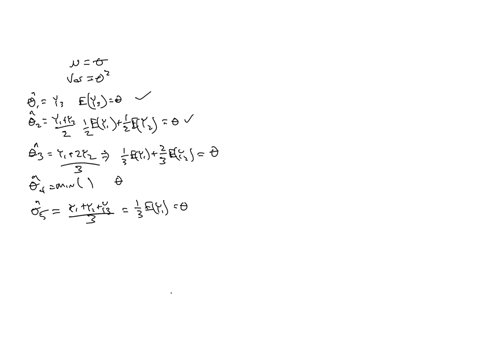 μ = θ
Var = θ²
θ̂₁ = Y₃ E(Y₃) = θ ✓
θ̂₂ = (Y₁+Y₂)/2 1/2 E(Y₁) + 1/2 E(Y₂) = θ ✓
θ̂₃ = (Y₁+2Y₂)/3 ⇒ 1/3 E(Y₁) + 2/3 E(Y₂) = θ
θ̂₄ = min( ) θ
θ̂₅ = (Y₁+Y₁+Y₃)/3 = 1/3 E(Y₁) = θ